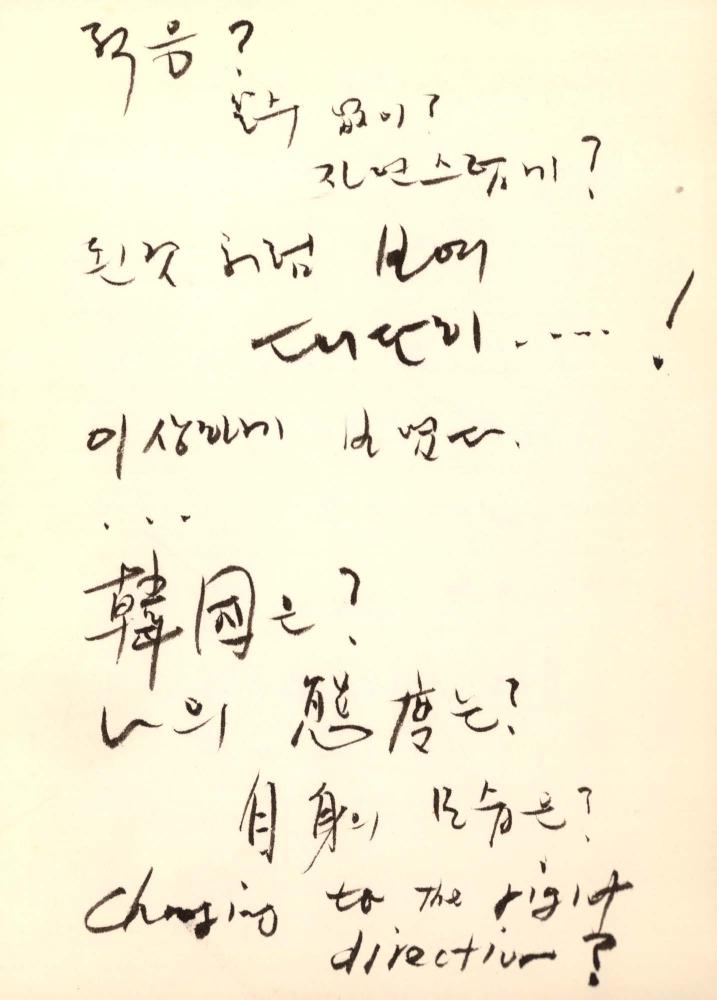 적응?
할수 없이?
자연스럽게?
된것 처럼 보여
대단히.....!
이상하게 보였다.
...
韓國은?
나의 態度는?
自身의 모습은?
Changing to the right
direction?